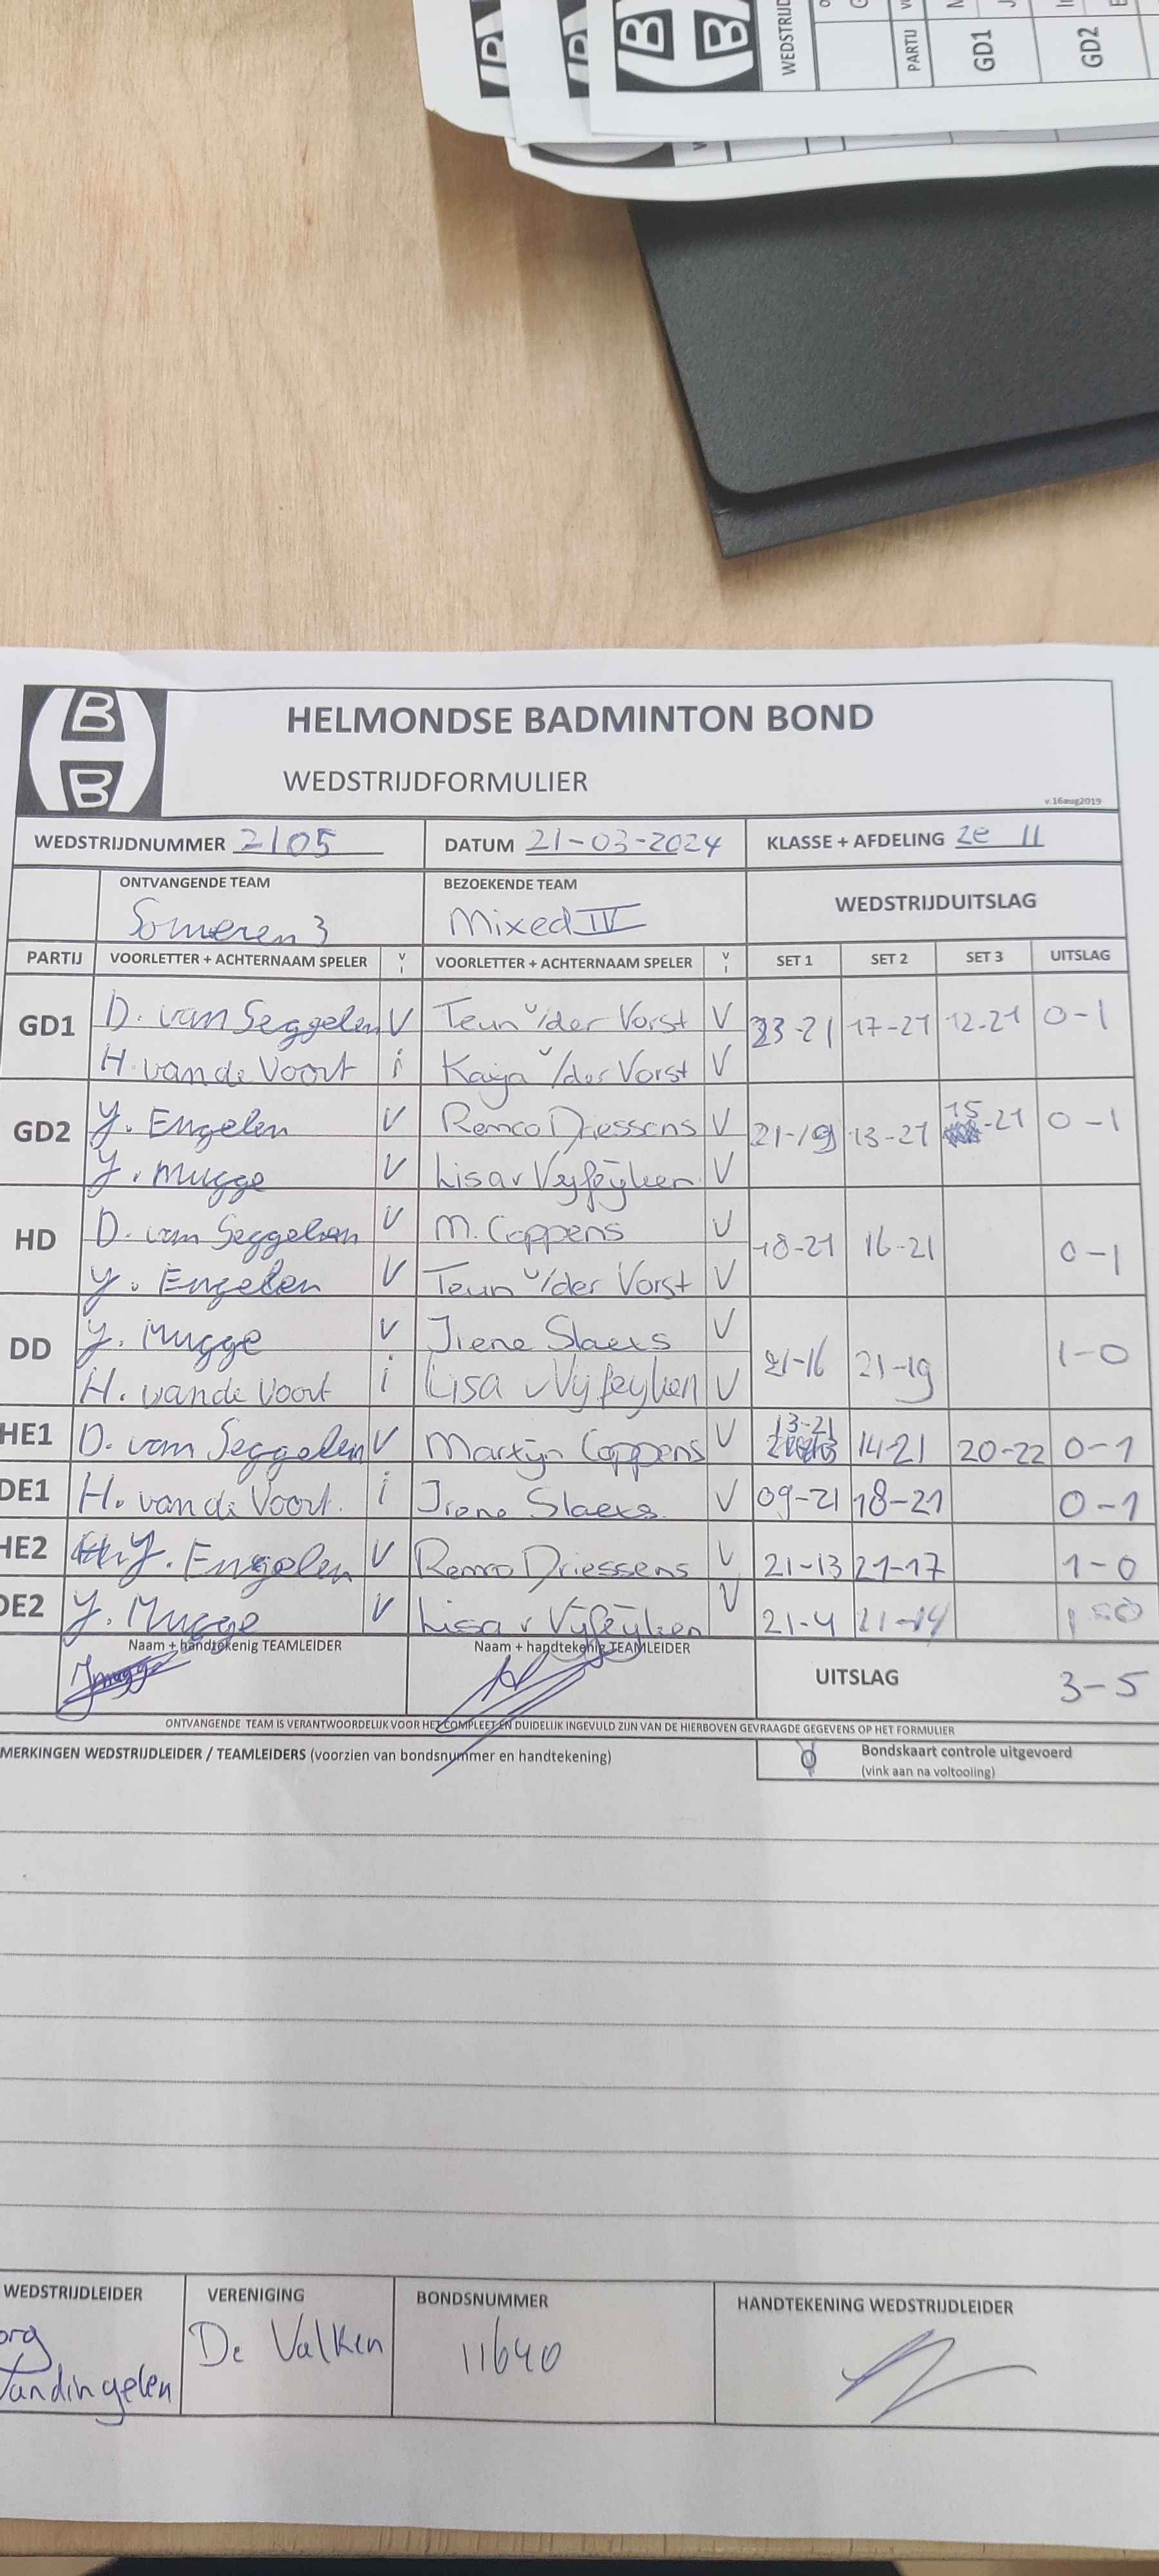 WEDSTRIJD
PARTIJ
GD1
GD2
HELMONDSE BADMINTON BOND
WEDSTRIJDFORMULIER
v.16aug2019
WEDSTRIJDNUMMER 2105 DATUM 21-03-2024 KLASSE + AFDELING 2e II
ONTVANGENDE TEAM BEZOEKENDE TEAM WEDSTRIJDUITSLAG
Someren 3 Mixed IV
PARTIJ VOORLETTER + ACHTERNAAM SPELER V I VOORLETTER + ACHTERNAAM SPELER V I SET 1 SET 2 SET 3 UITSLAG
GD1 D. van Seggelen V Teun v/der Vorst V 23-21 17-21 12-21 0-1
H. van de Voort i Kaya v/der Vorst V
GD2 Y. Engelen V Remco Driessens V 21-19 13-21 15-21 0-1
Y. Mugge V Lisa v Vyfeyken V
HD D. van Seggelen V M. Coppens V 18-21 16-21 0-1
Y. Engelen V Teun v/der Vorst V
DD Y. Mugge V Irene Slaets V 21-16 21-19 1-0
H. van de Voort i Lisa v Vyfeyken V
HE1 D. van Seggelen V Martijn Coppens V 13-21 14-21 20-22 0-1
DE1 H. van de Voort. i Irene Slaets V 09-21 18-21 0-1
HE2 Y. Engelen V Remco Driessens V 21-13 21-17 1-0
DE2 Y. Mugge V Lisa v Vyfeyken V 21-4 21-14 1-0
Naam + handtekenig TEAMLEIDER Naam + handtekenig TEAMLEIDER UITSLAG 3-5
ONTVANGENDE TEAM IS VERANTWOORDELIJK VOOR HET COMPLEET EN DUIDELIJK INGEVULD ZIJN VAN DE HIERBOVEN GEVRAAGDE GEGEVENS OP HET FORMULIER
MERKINGEN WEDSTRIJDLEIDER / TEAMLEIDERS (voorzien van bondsnummer en handtekening) Bondskaart controle uitgevoerd
(vink aan na voltooling)
WEDSTRIJDLEIDER VERENIGING BONDSNUMMER HANDTEKENING WEDSTRIJDLEIDER
org De Valken 11640
Vandingelen